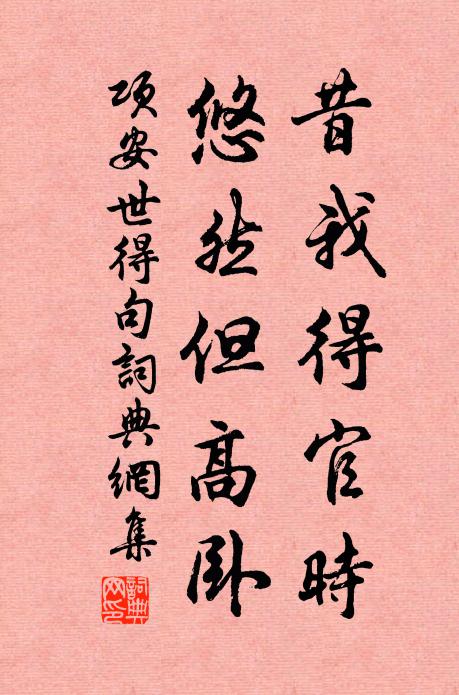 昔我得官時
悠然但高卧
項安世得句詞典網集
詞典網印